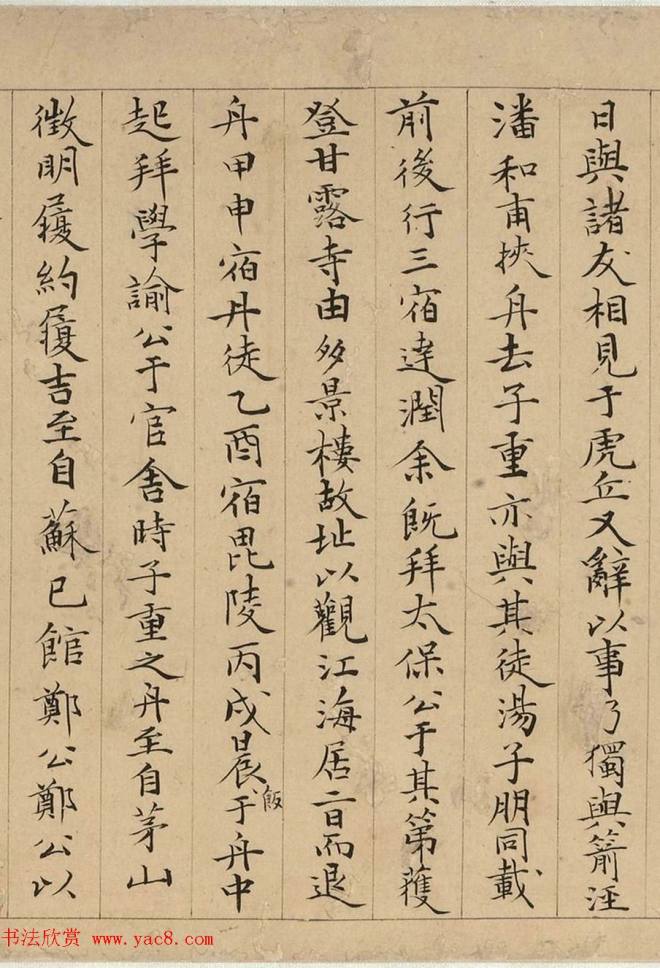 日與諸友相見于虎丘又辭以事乃獨與箭涇
潘和甫挾舟去子重亦與其徒湯子朋同載
前後行三宿達潤余既拜太保公于其第獲
登甘露寺由多景樓故址以觀江海居二日而退
舟甲申宿丹徒乙酉宿毘陵丙戌晨飯于舟中
起拜學諭公于官舍時子重之舟至自茅山
徵明履約履吉至自蘇已館鄭公鄭公以
书法欣赏 www.yac8.com